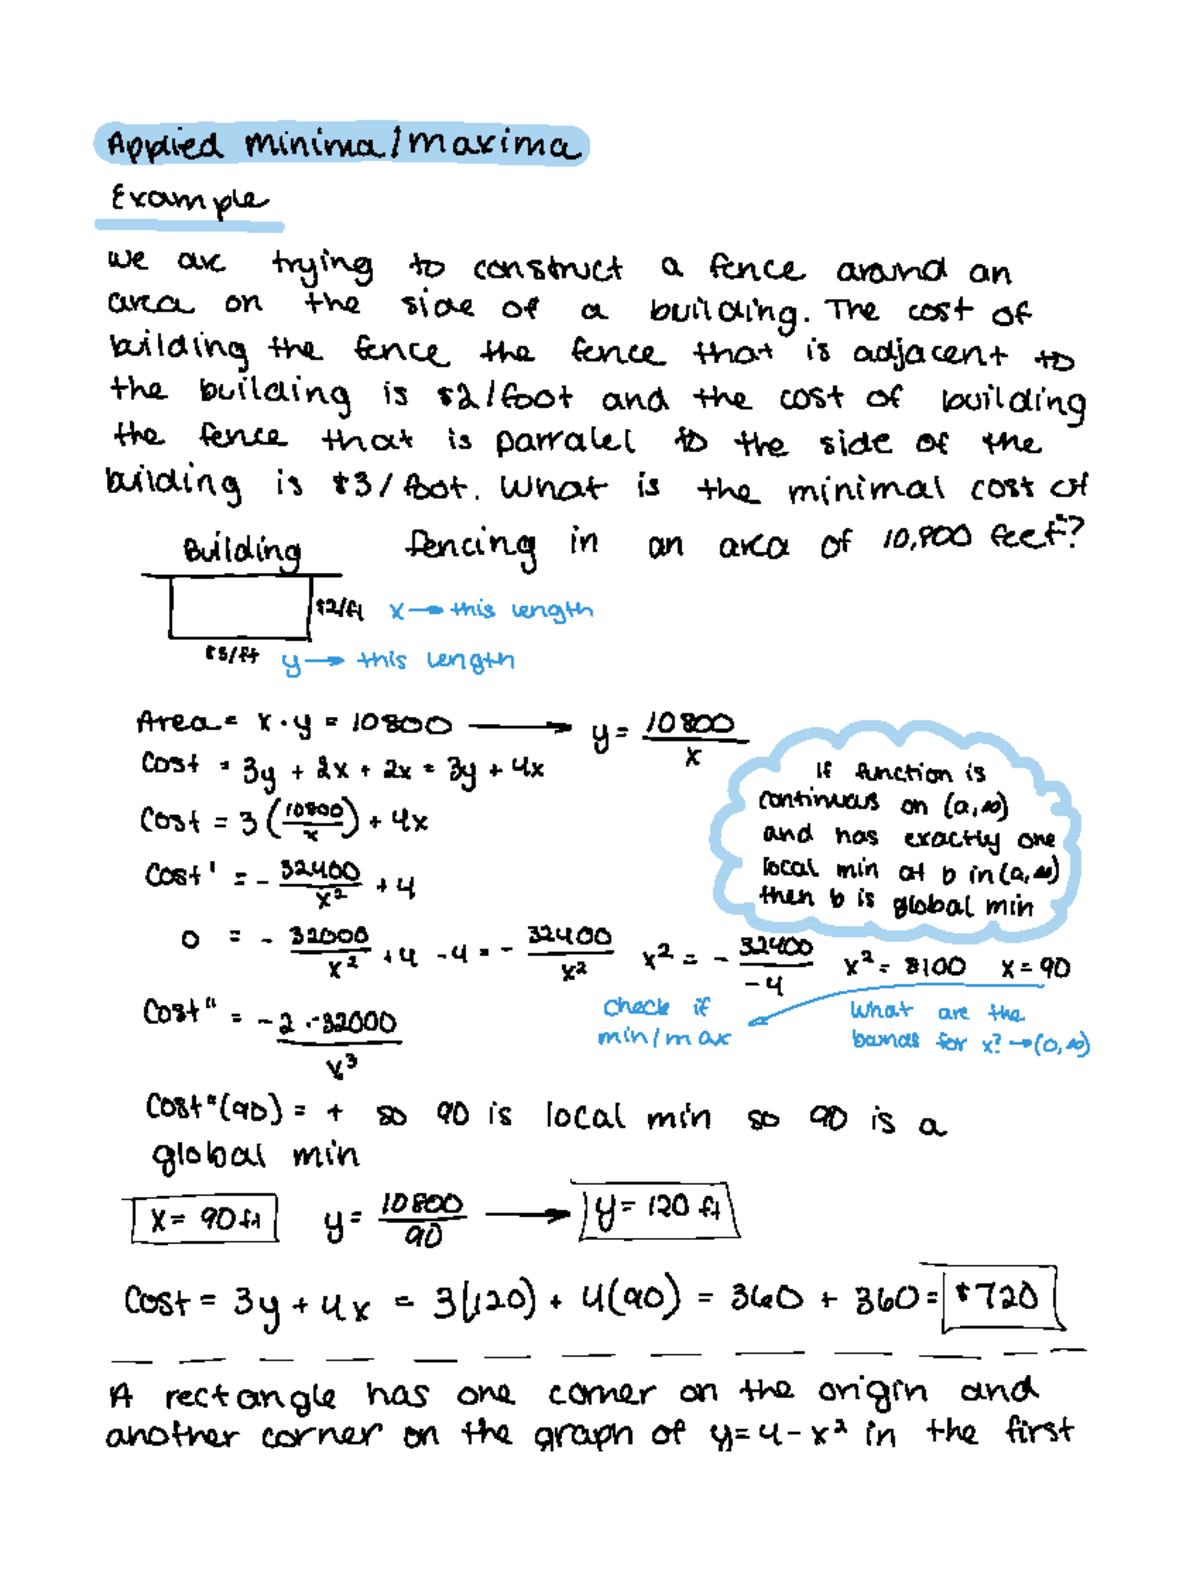 Applied Minima/Maxima
Example
we are trying to construct a fence around an
area on the side of a building. The cost of
building the fence the fence that is adjacent to
the building is $2/foot and the cost of building
the fence that is parralel to the side of the
building is $3/foot. What is the minimal cost of
fencing in an area of 10,800 feet²?
Building
$2/ft x → this length
$3/ft y → this length
Area = x · y = 10800 → y = 10800/x
Cost = 3y + 2x + 2x = 3y + 4x
Cost = 3(10800/x) + 4x
Cost' = - 32400/x² + 4
If function is
continuous on (a,∞)
and has exactly one
local min at b in (a,∞)
then b is global min
0 = - 32000/x² + 4 - 4 = - 32400/x² x² = - 32400/-4 x² = 8100 x = 90
check if
min/max
What are the
bands for x? → (0,∞)
Cost" = -2 · -32000/x³
Cost"(90) = + so 90 is local min so 90 is a
global min
x = 90ft y = 10800/90 → y = 120 ft
Cost = 3y + 4x = 3(120) + 4(90) = 360 + 360 = $720
A rectangle has one corner on the origin and
another corner on the graph of y=4-x² in the first